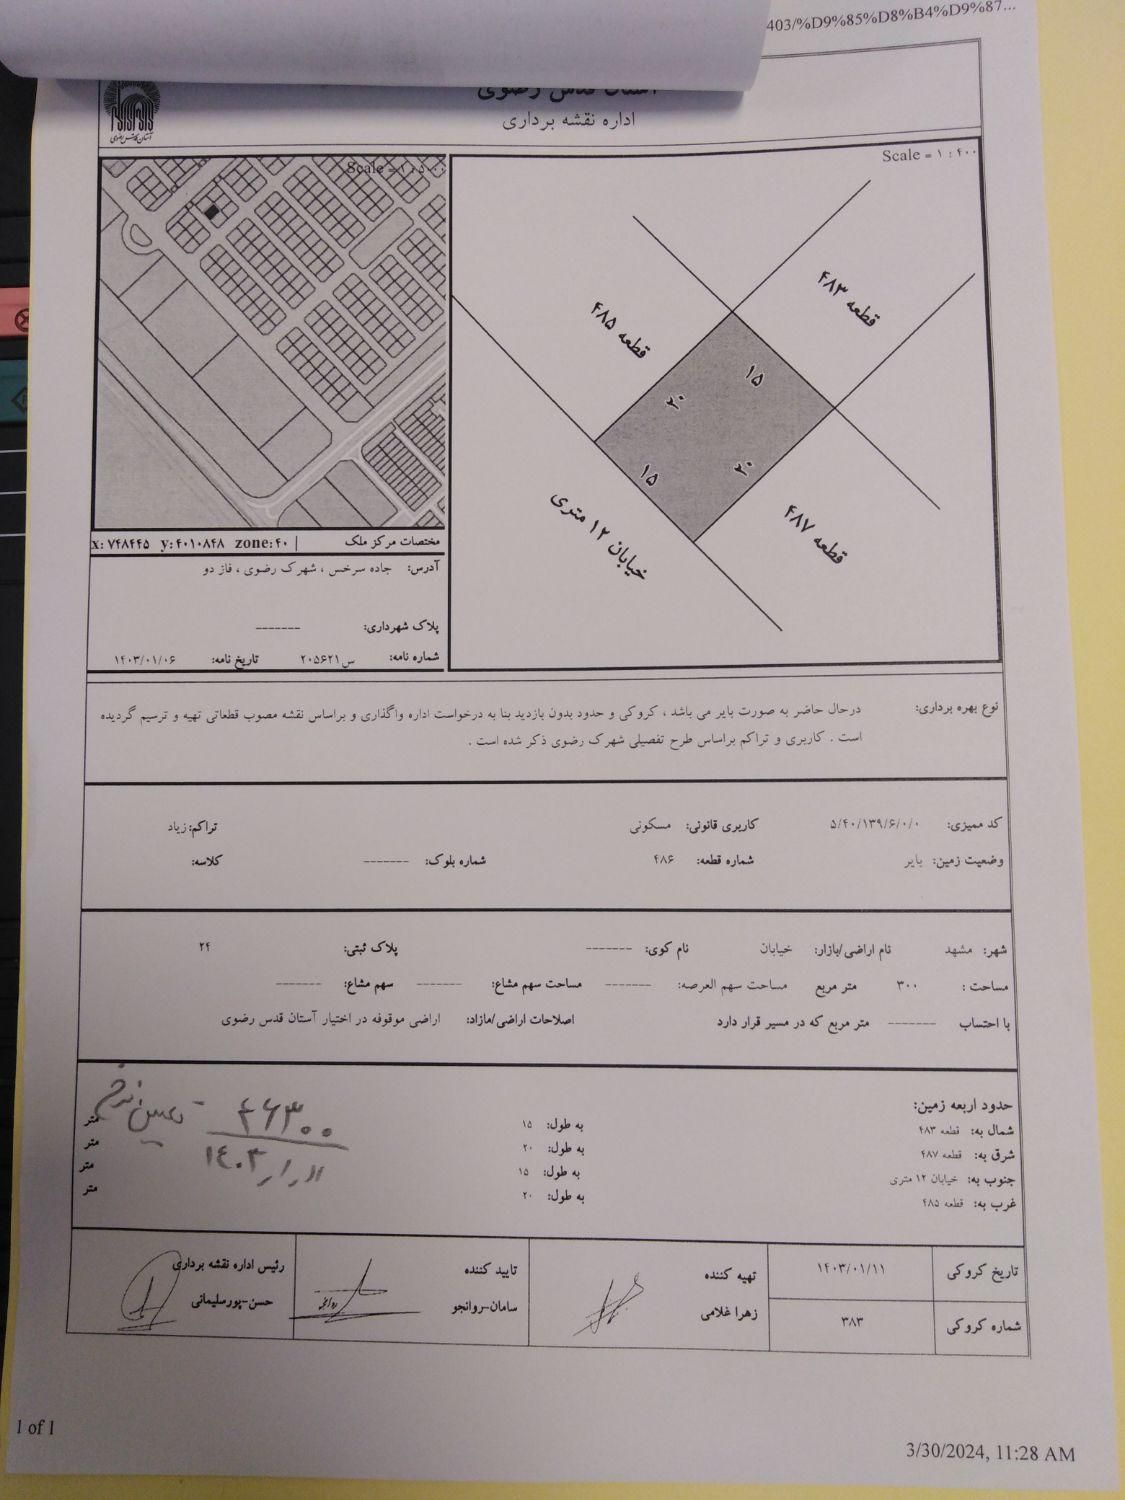 403/%D9%85%D8%B4%D9%87...
آستان قدس رضوی
اداره نقشه برداری
آستان قدس رضوی
Scale = ۱ : ۵۰۰۰
Scale = ۱ : ۴۰۰
قطعه ۴۸۳
قطعه ۴۸۵
۱۵
۲۰
۲۰
۱۵
قطعه ۴۸۷
خیابان ۱۲ متری
مختصات مرکز ملک | x: ۷۴۸۴۴۵ y: ۴۰۱۰۸۴۸ zone: ۴۰
آدرس: جاده سرخس ، شهرک رضوی ، فاز دو
پلاک شهرداری: -------
شماره نامه: س۲۰۵۶۲۱ تاریخ نامه: ۱۴۰۳/۰۱/۰۶
نوع بهره برداری: درحال حاضر به صورت بایر می باشد ، کروکی و حدود بدون بازدید بنا به درخواست اداره واگذاری و براساس نقشه مصوب قطعاتی تهیه و ترسیم گردیده
است . کاربری و تراکم براساس طرح تفصیلی شهرک رضوی ذکر شده است .
کد ممیزی: ۵/۴۰/۱۳۹/۶/۰/۰ کاربری قانونی: مسکونی تراکم: زیاد
وضعیت زمین: بایر شماره قطعه: ۴۸۶ شماره بلوک: ------- کلاسه:
شهر: مشهد نام اراضی/بازار: خیابان نام کوی: ------- پلاک ثبتی: ۲۴
مساحت : ۳۰۰ متر مربع مساحت سهم العرصه: ------- مساحت سهم مشاع: ------- سهم مشاع: -------
با احتساب ------- متر مربع که در مسیر قرار دارد اصلاحات اراضی/مازاد: اراضی موقوفه در اختیار آستان قدس رضوی
حدود اربعه زمین:
شمال به: قطعه ۴۸۳ به طول: ۱۵ متر
شرق به: قطعه ۴۸۷ به طول: ۲۰ متر
جنوب به: خیابان ۱۲ متری به طول: ۱۵ متر
غرب به: قطعه ۴۸۵ به طول: ۲۰ متر
۴۶۳۰۰ - تعیین نرخ
۱۴۰۳/۱/۱۱
تاریخ کروکی ۱۴۰۳/۰۱/۱۱ تهیه کننده تایید کننده رئیس اداره نقشه برداری
شماره کروکی ۳۸۳ زهرا غلامی سامان-روانجو حسن-پورسلیمانی
1 of 1
3/30/2024, 11:28 AM